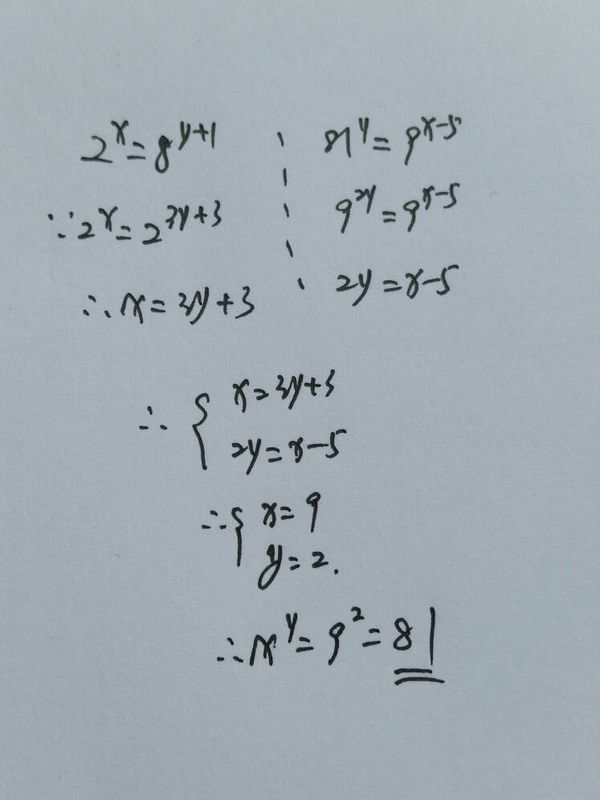 2^x=8^{y+1}
∵2^x=2^{3y+3}
∴x=3y+3
81^y=9^{x-5}
9^{2y}=9^{x-5}
2y=x-5
∴{x=3y+3
2y=x-5
∴{x=9
y=2.
∴x^y=9^2=81